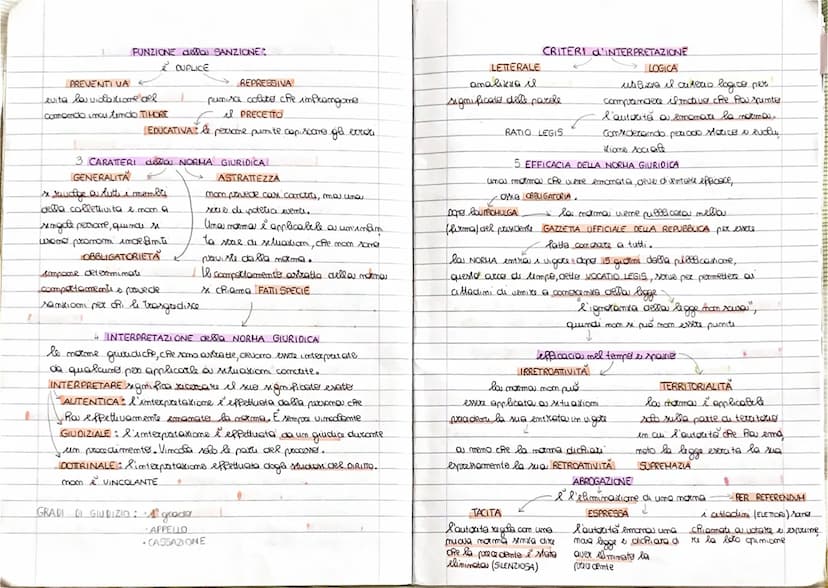 FUNZIONE della SANZIONE:
è DUPLICE
PREVENTIVA
REPRESSIVA
evita la violazione del
comando incutendo TIMORE
punisce coloro che infrangono
il PRECETTO
EDUCATIVA: le persone punite capiscono gli errori
3 CARATTERI della NORMA GIURIDICA
GENERALITÀ
si rivolge a tutti i membri
della collettività e non a
singole persone, quindi si
usano pronomi indefiniti
ASTRATTEZZA
non prevede casi concreti, ma una
serie di ipotetici eventi.
Una norma è applicabile a un'infini
tà serie di situazioni, che non sono
previsti dalla norma.
Il comportamento astratto della norma
si chiama FATTISPECIE
OBBLIGATORIETÀ
impone determinati
comportamenti e prevede
sanzioni per chi li trasgredisce
4 INTERPRETAZIONE della NORMA GIURIDICA
le norme giuridiche, che sono astratte, devono essere interpretate
da qualcuno per applicarle a situazioni concrete.
INTERPRETARE significa ricercare il suo significato esatto
AUTENTICA: l'interpretazione è effettuata dalla persona che
ha effettivamente emanato la norma. È sempre vincolante
GIUDIZIALE: l'interpretazione è effettuata da un giudice durante
un procedimento. Vincola solo le parti del processo.
DOTTRINALE: l'interpretazione effettuata dagli studiosi del DIRITTO.
non è VINCOLANTE
GRADI DI GIUDIZIO: · 1° grado
· APPELLO
· CASSAZIONE
CRITERI d'INTERPRETAZIONE
LETTERALE
analizza il
significato delle parole
LOGICA
utilizza il criterio logico per
comprendere il motivo che ha spinto
l'autorità a emanare la norma.
Considerando periodo storico e evolu
zione sociale
RATIO LEGIS
5 EFFICACIA DELLA NORMA GIURIDICA
una norma che viene emanata, deve diventare efficace,
ossia OBBLIGATORIA.
dopo la PROMULGA
(firma) del presidente
la norma viene pubblicata nella
GAZZETTA UFFICIALE DELLA REPUBBLICA per essere
fatta conoscere a tutti.
la NORMA entra in vigore dopo 15 giorni dalla pubblicazione,
questo arco di tempo, detto VOCATIO LEGIS, serve per permettere ai
cittadini di venire a conoscenza della legge
"l'ignoranza della legge non scusa",
quindi non si può non essere puniti
efficacia nel tempo e spazio
IRRETROATTIVITÀ
la norma non può
essere applicata a situazioni
precedenti la sua entrata in vigore
a meno che la norma dichiari
espressamente la sua RETROATTIVITÀ
TERRITORIALITÀ
la norma è applicabile
solo sulla parte di territorio
in cui l'autorità che ha ema
nato la legge esercita la sua
SUPREMAZIA
ABROGAZIONE
è l'eliminazione di una norma
TACITA
l'autorità regola con una
nuova norma senza dire
che la precedente è stata
eliminata (SILENZIOSA)
ESPRESSA
l'autorità emana una
nuova legge e dichiara di
aver eliminato la
precedente
PER REFERENDUM
i cittadini (ELETTORI) sono
chiamati a votare e esprime
re la loro opinione